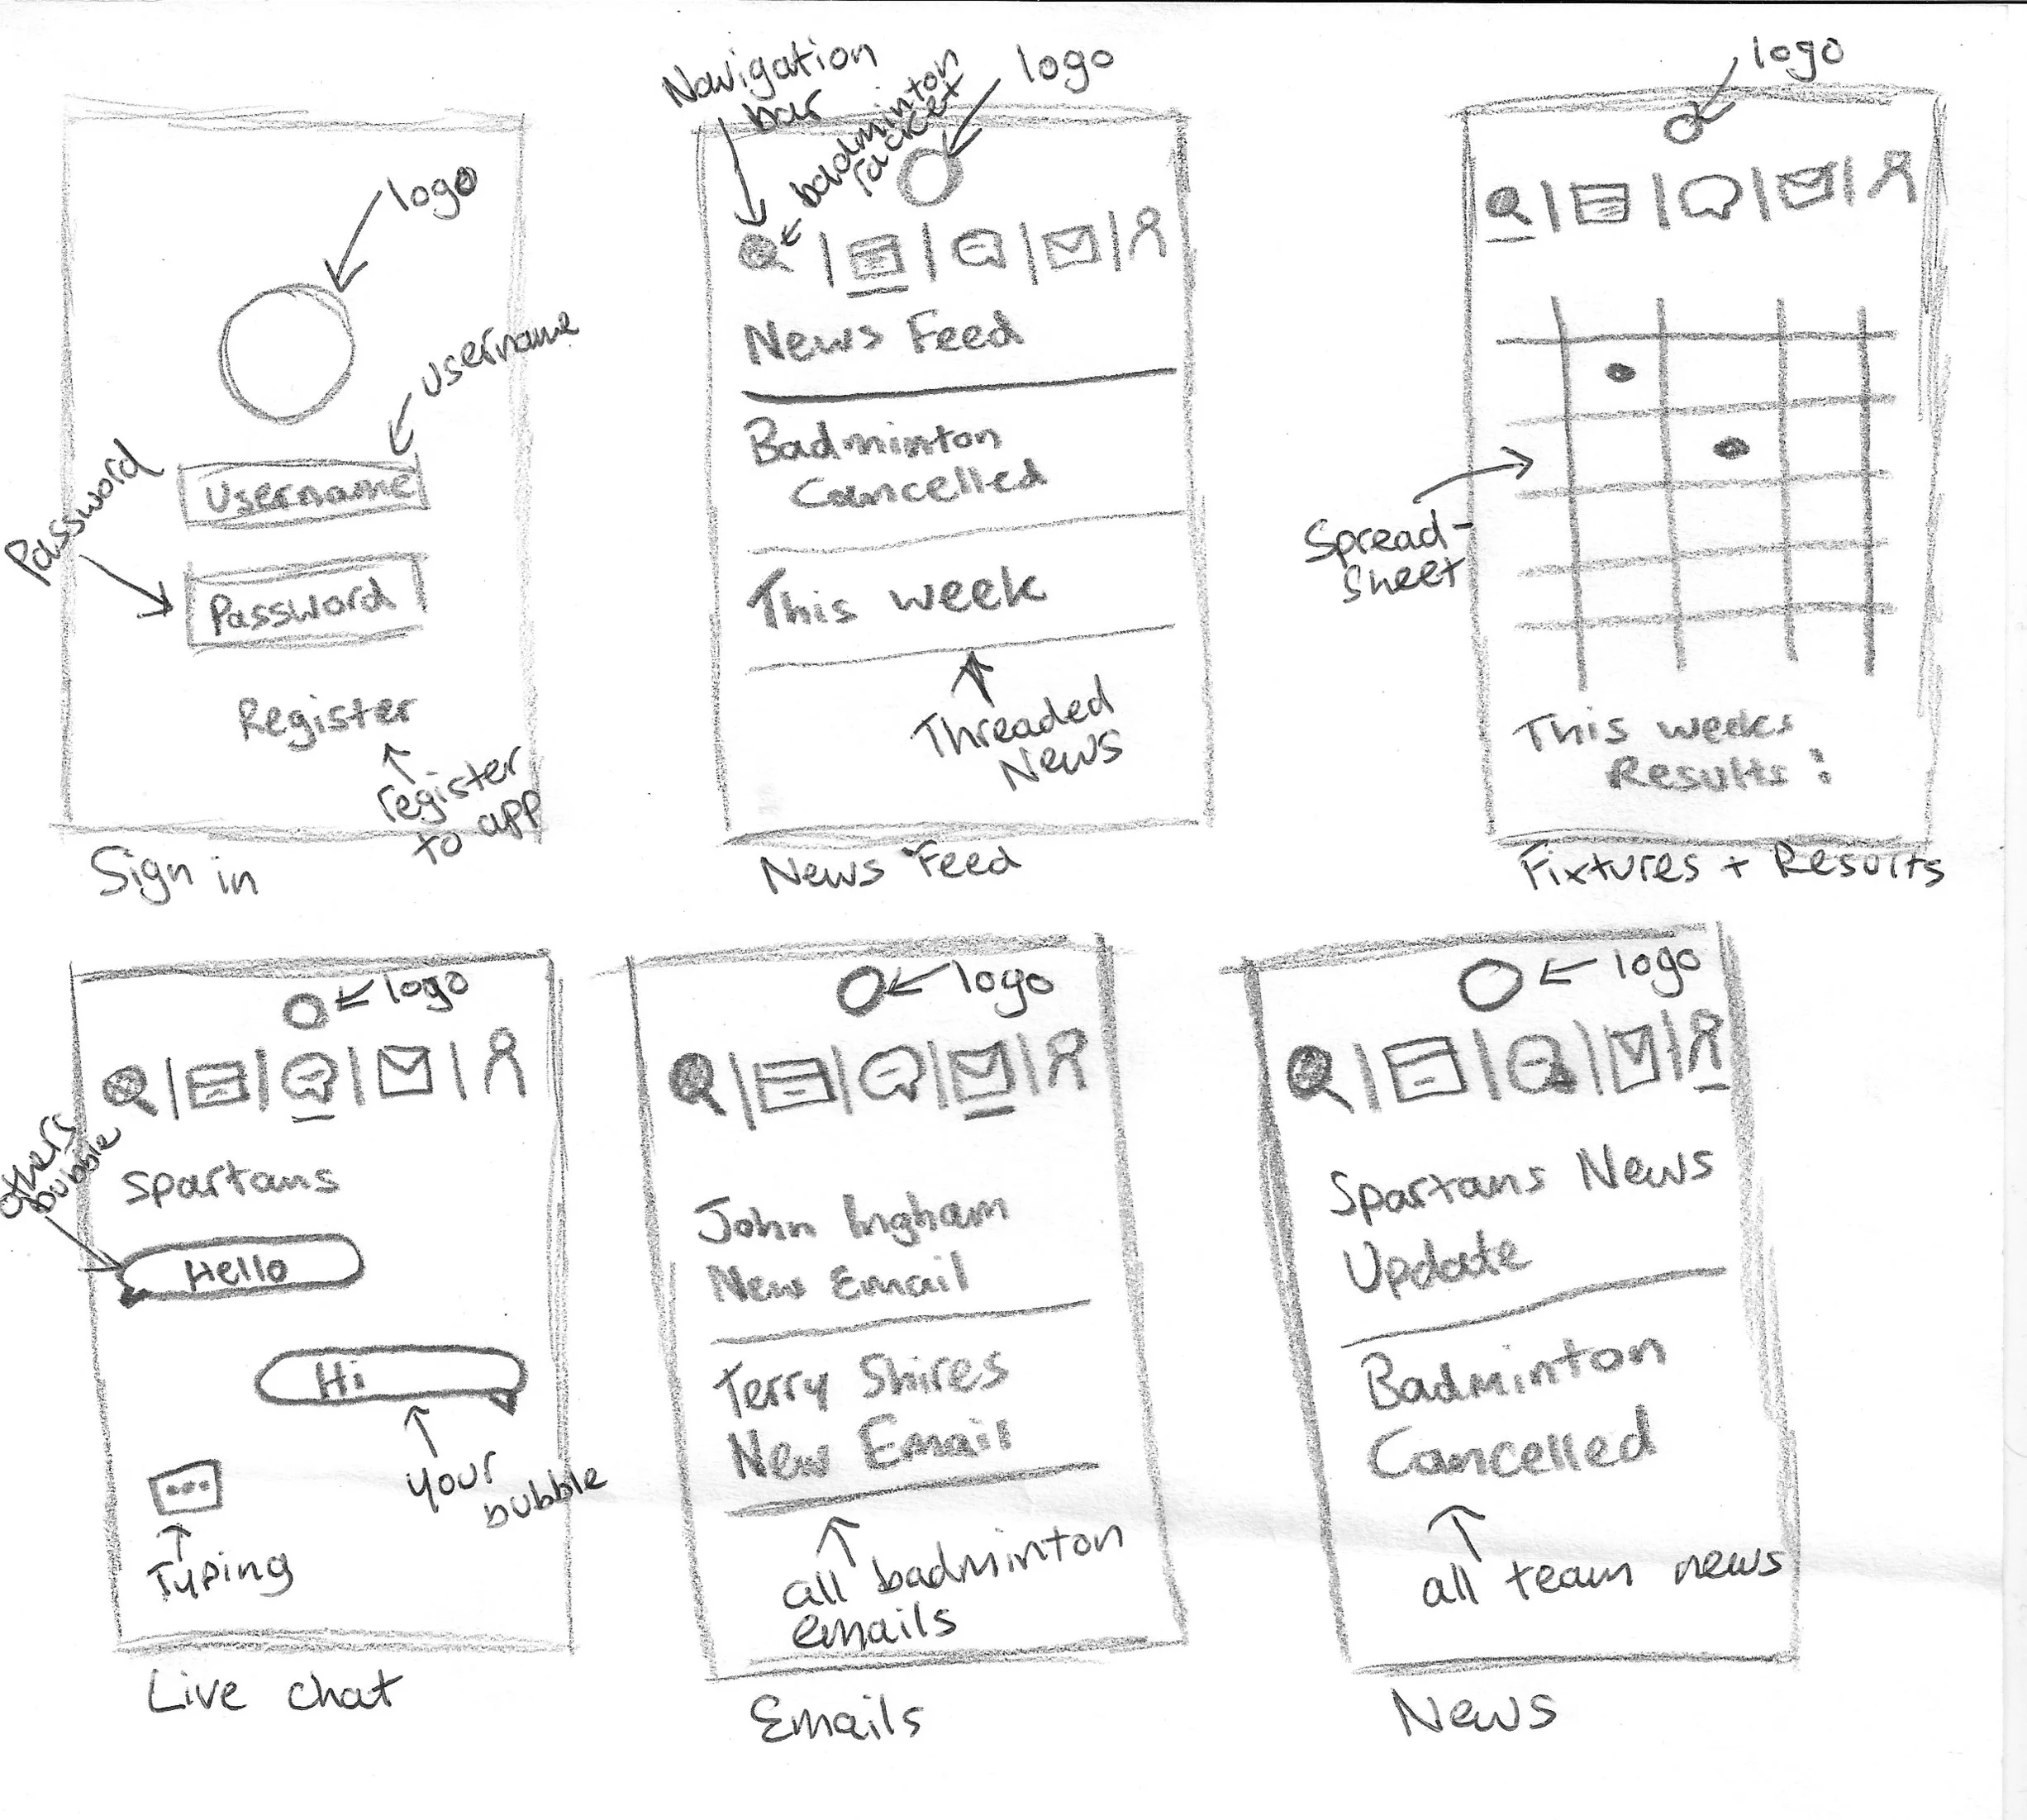 logo
username
Password
Username
Password
Register
register
to app
Sign in
Navigation
bar
badminton
racket
logo
News Feed
Badminton
Cancelled
This week
Threaded
News
News Feed
logo
Spread-
Sheet
This weeks
Results :
Fixtures + Results
logo
others
bubble
Spartans
Hello
Hi
your
bubble
Typing
Live chat
logo
John Ingham
New Email
Terry Shires
New Email
all badminton
emails
Emails
logo
Spartans News
Update
Badminton
Cancelled
all team news
News